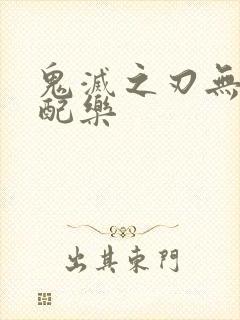 鬼滅之刃無
配樂
出其東門